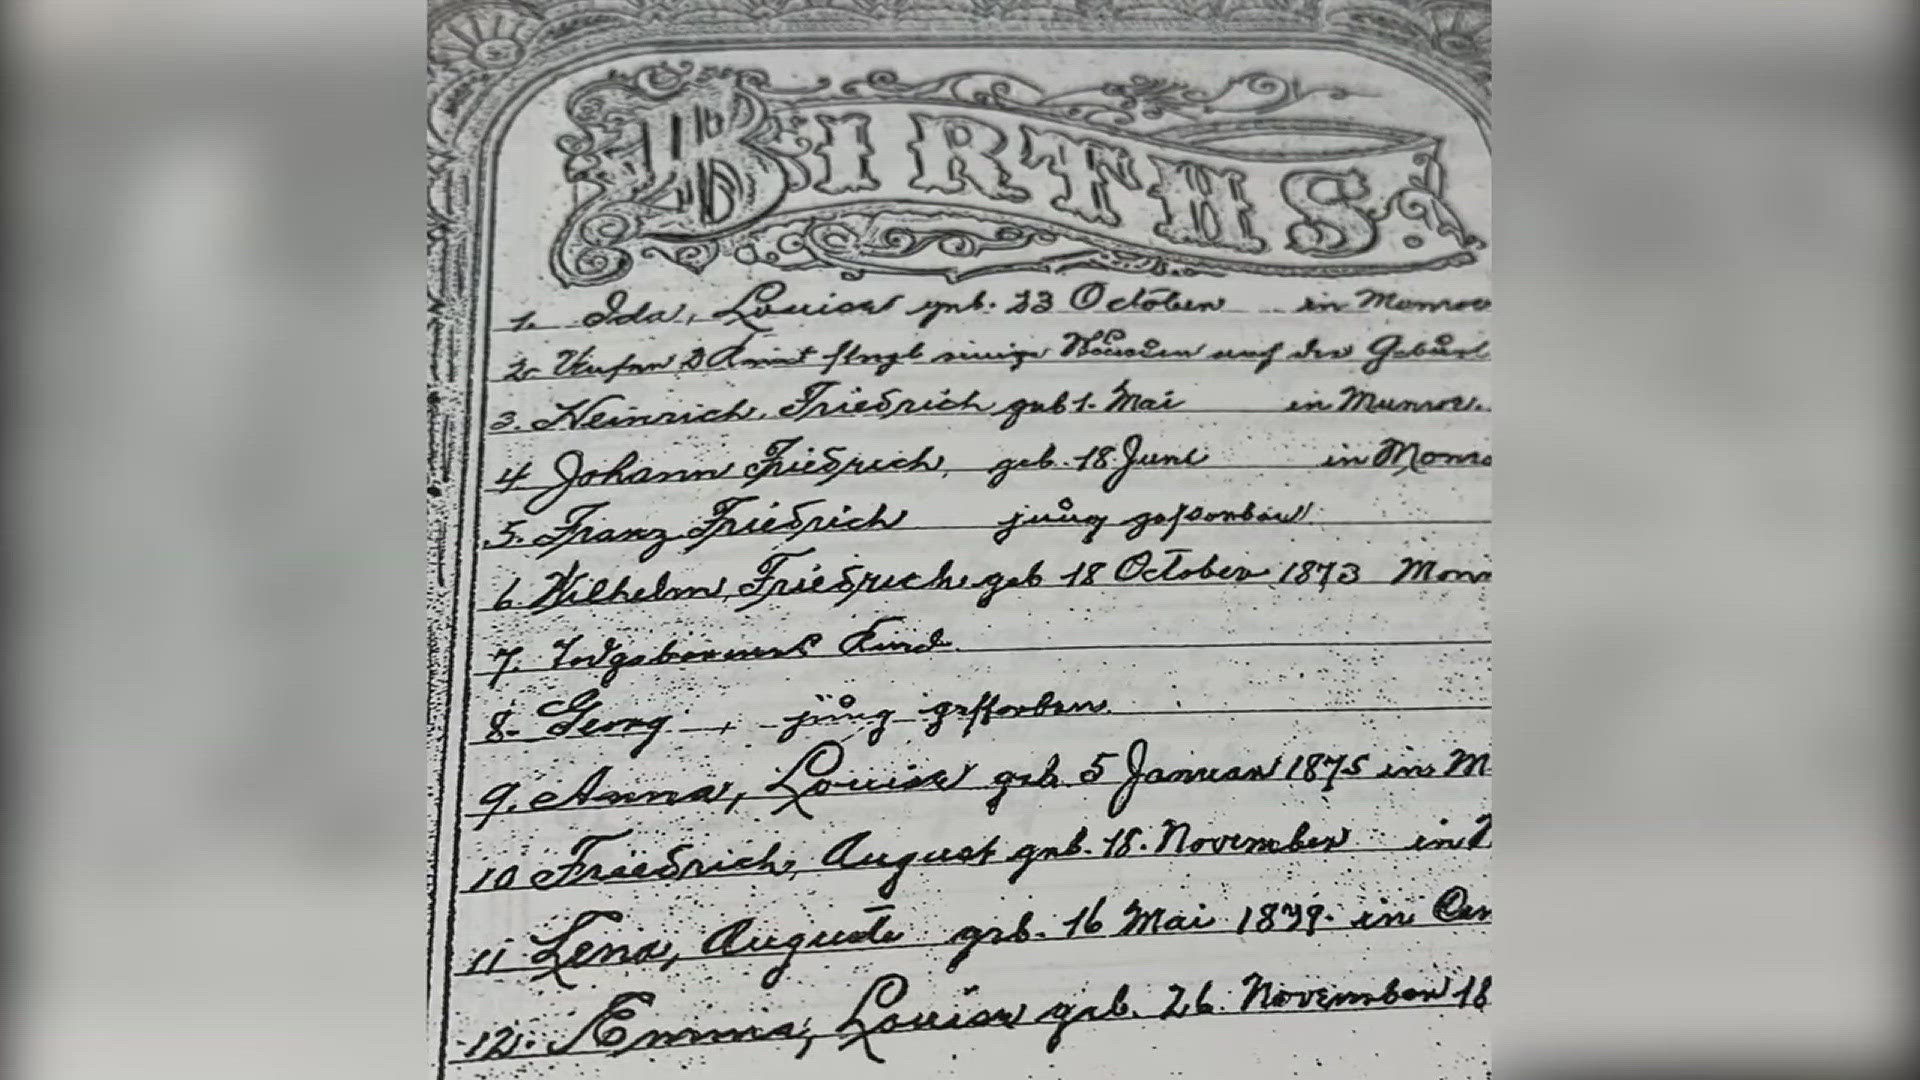 BIRTHS.
1. Ida, Louise geb. 23 October in Monroe
2. einige auf der
3. Heinrich, Friedrich geb 1. Mai in Munroe.
4 Johann Friedrich, geb. 18 Juni in Monro
5. Franz Friedrich jung gestorben
6. Wilhelm, Friedrich geb 18 October 1873 Monr
7. Todgeborenes Kind.
8. Georg, jung gestorben
9. Anna, Louise geb. 5 Januar 1875 in M
10 Friedrich, August geb. 18. November in
11 Lena, Auguste geb. 16 Mai 1879. in
12. Emma, Louise geb. 26. November 18